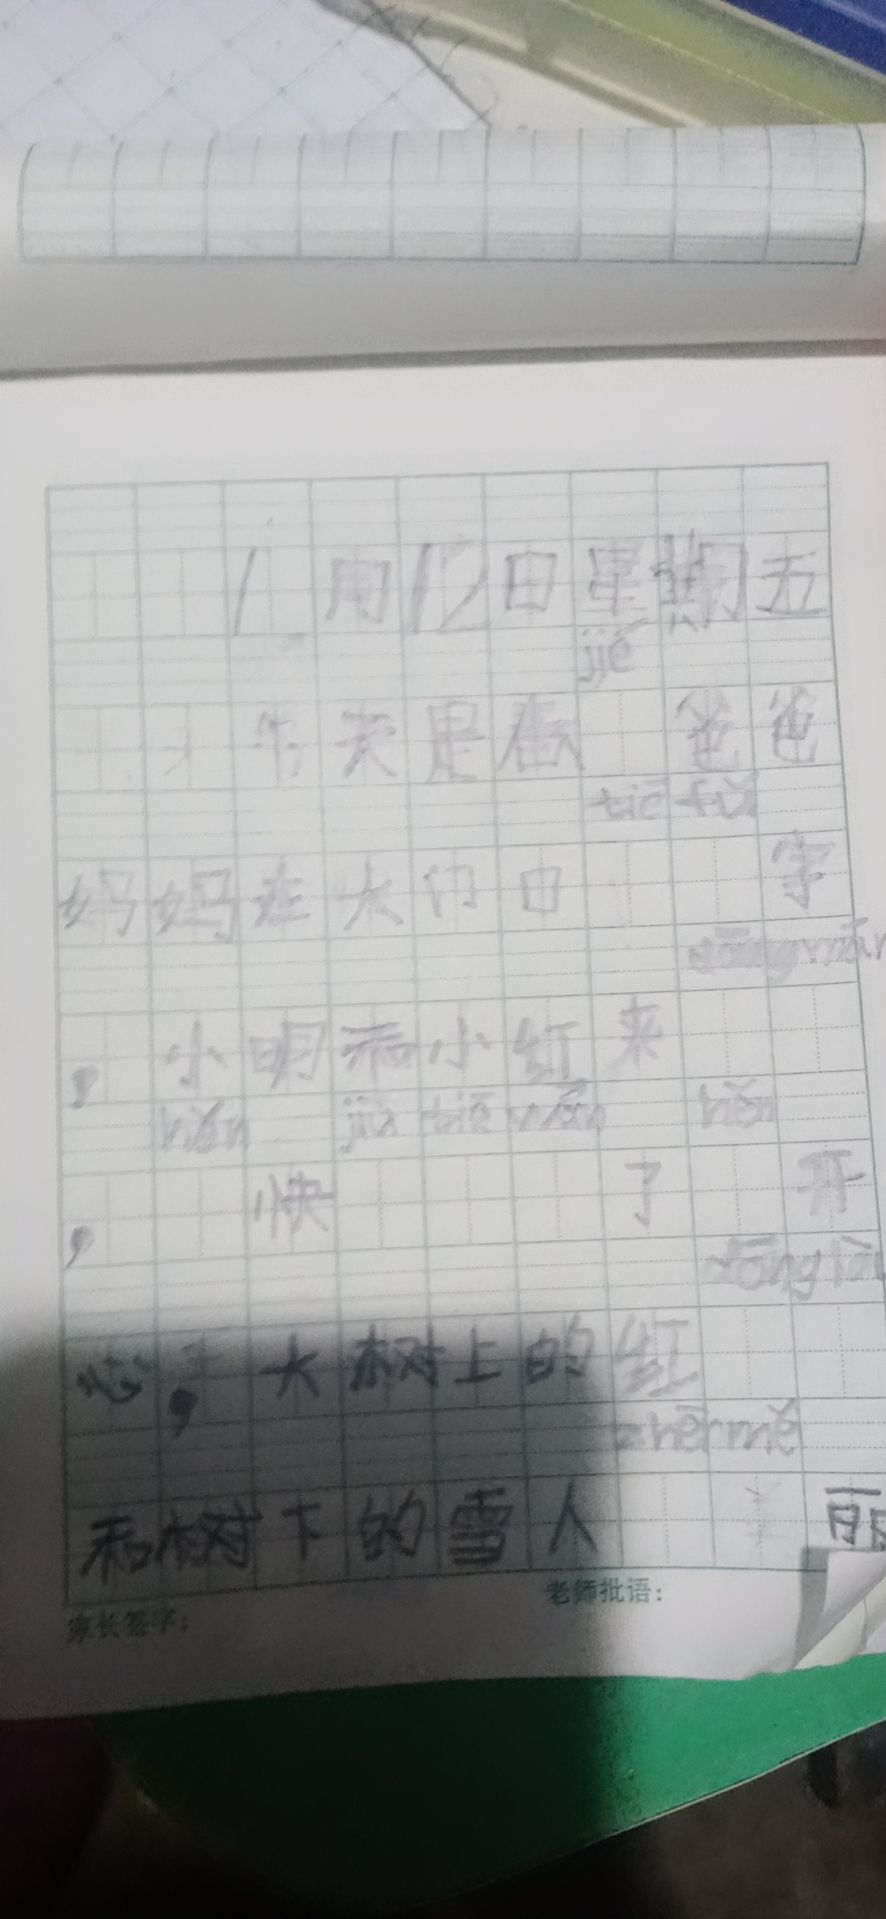 1月12日星期五
jié
今天是春 爸爸
tiē fú
妈妈在大门口 字
,小明和小红来
hěn jiā tiē mǎn hěn
,快 了 开
心,大树上的红
zhēn měi
和树下的雪人 丽
家长签字: 老师批语: